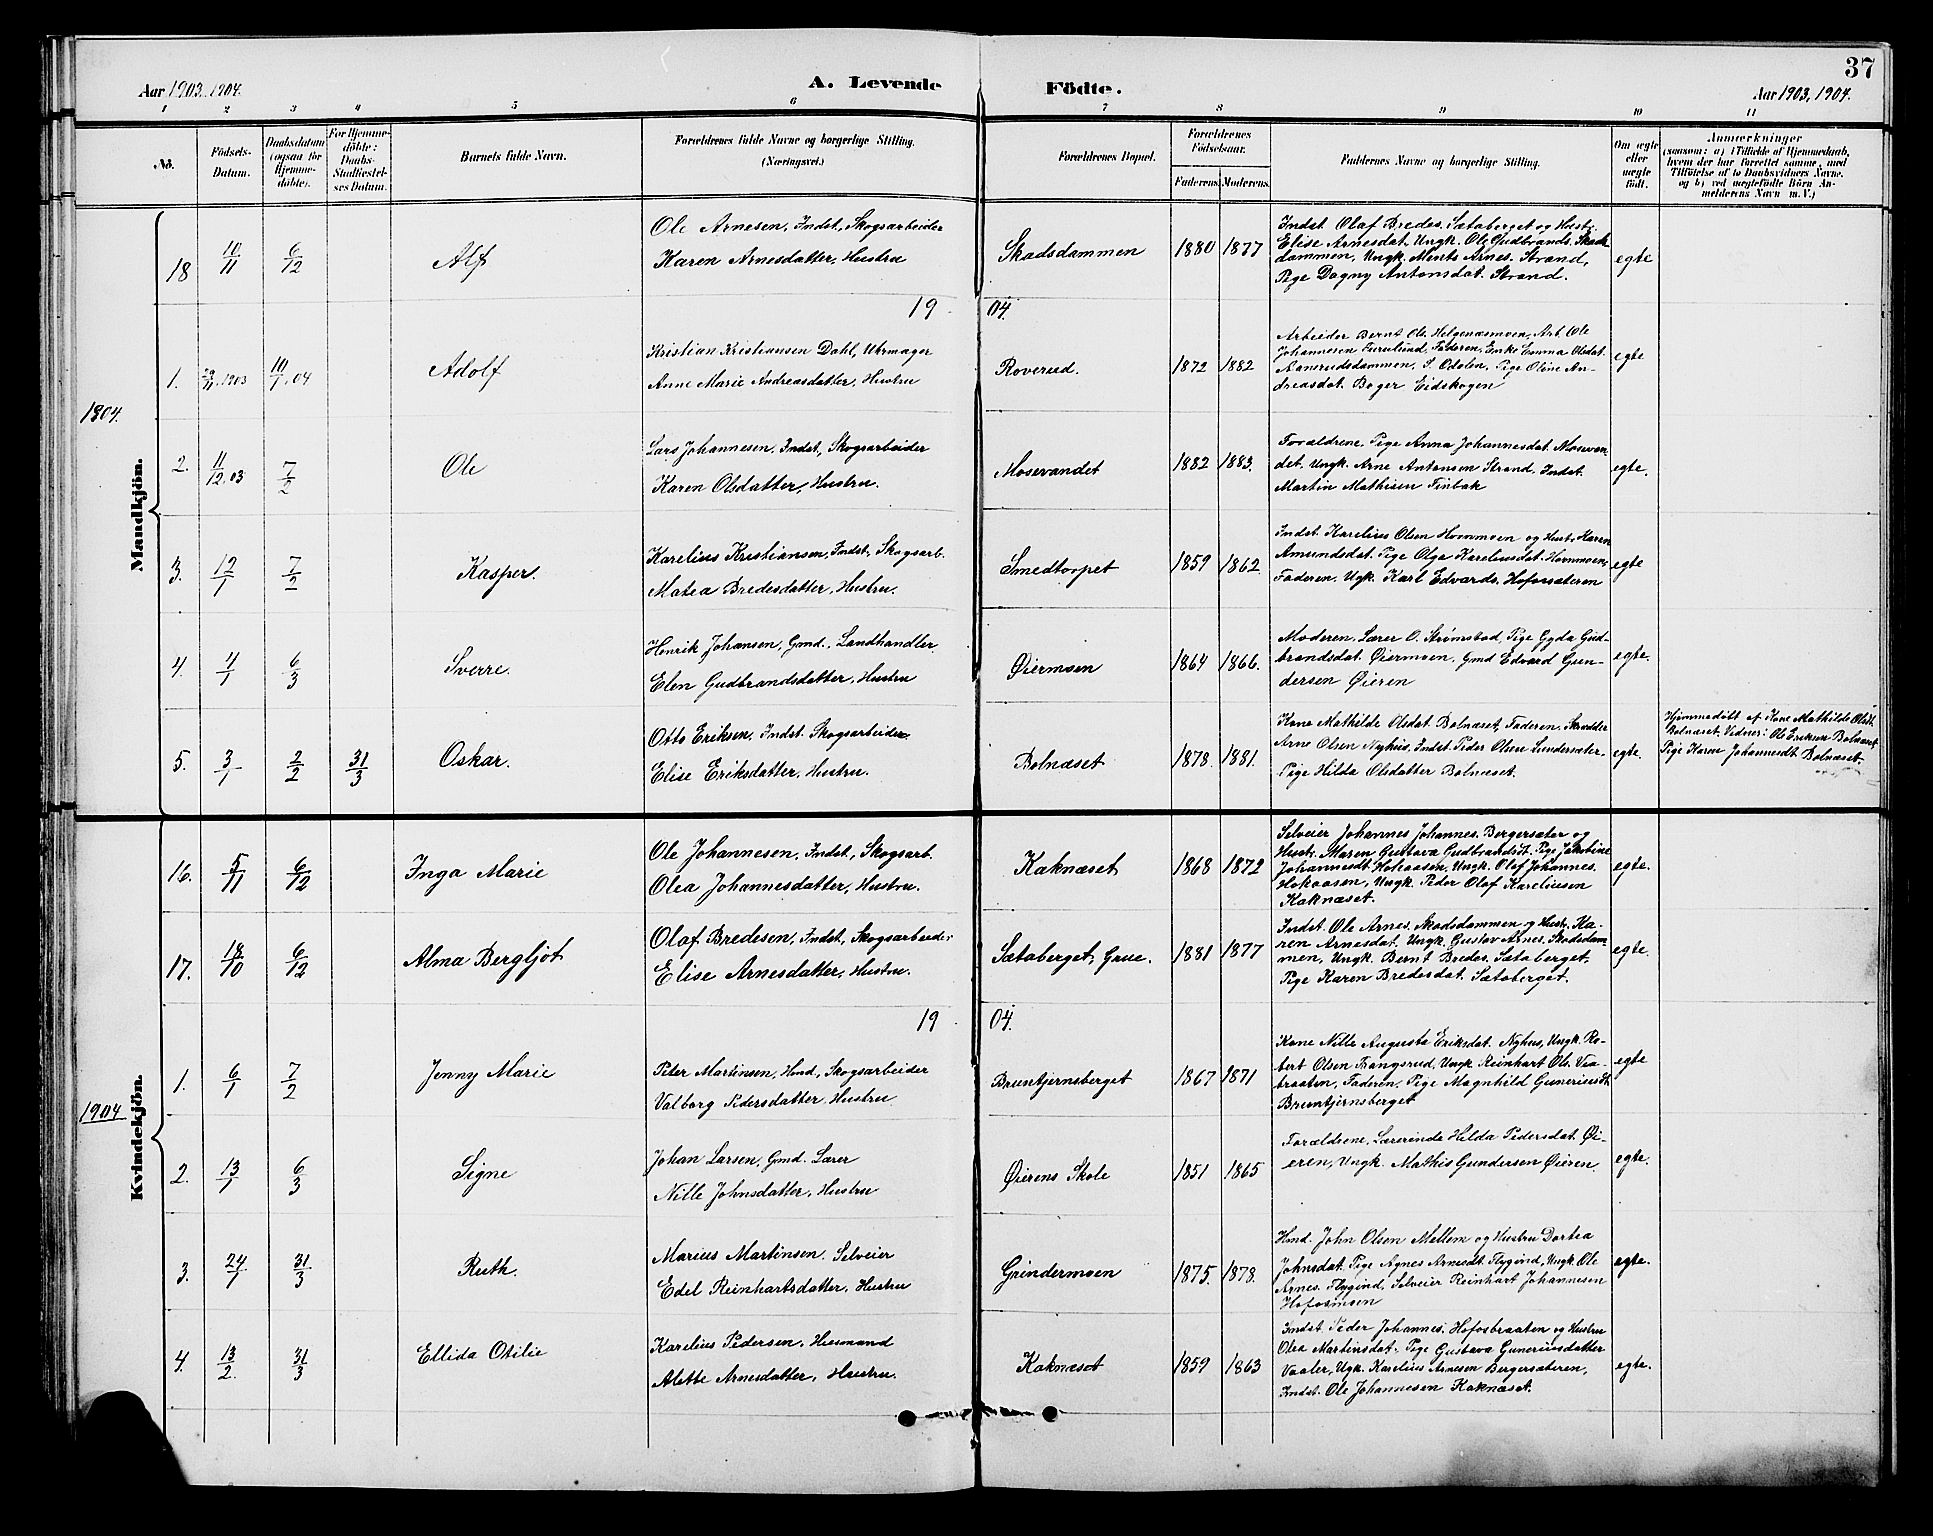 37
Aar 1903, 1904.
A. Levende Födte.
Aar 1903, 1904.
1 2 3 4 5 6 7 8 9 10 11
No.
Födsels-Datum.
Daabsdatum (ogsaa for Hjemmedöbte).
For Hjemmedöbte: Daabs-Stadfæstelses Datum.
Barnets fulde Navn.
Forældrenes fulde Navne og borgerlige Stilling.
(Næringsvei.)
Forældrenes Bopæl.
Forældrenes Födselsaar.
Faderens. Moderens.
Faddernes Navne og borgerlige Stilling.
Om ægte eller uægte födt.
Anmærkninger
(saasom: a) i Tilfælde af Hjemmedaab,
hvem der har forrettet samme, med
Tilföielse af to Daabsvidners Navne,
og b) ved uægtefödte Börn An-
melderens Navn m. V.)
Mandkjön.
18 10/11 6/12 Alf
Ole Arnesen, Indst, Skogsarbeider
Karen Arnesdatter, Hustru
Skadsdammen 1880 1877
Indst. Olaf Bredes. Sætaberget og Hustr.
Elise Arnesdat. Ungk. Ole Gudbrands. Skads
dammen, Ungk. Ments Arnes. Strand,
Pige Dagny Antonsdat. Strand.
egte
19 04.
1904.
1. 29/11.1903 10/1.04 Adolf
Kristian Kristiansen Dahl, Uhrmager
Anne Marie Andreasdatter, Hustru
Roverud. 1872 1882
Arbeider Bernt Ols. Helgenæsmoen, Arb. Ole
Johannesen Furulund, Faderen, Enke Emma Olsdat.
Aamrudsdammen, S. Odalen, Pige Oline An-
dreasdat. Boger Eidskogen
egte
2. 11/12.03 7/2 Ole
Lars Johannesen, Indst, Skogsarbeider
Karen Olsdatter, Hustru.
Mosevandet 1882 1883.
Forældrene, Pige Anna Johannesdat. Mosevan
det, Ungk. Arne Antonsen Strand. Indst.
Martin Mathisen Finbak
egte.
3. 12/1 7/2 Kasper.
Karelius Kristiansen, Indst, Skogsarb.
Matea Bredesdatter, Hustru.
Smedtorpet 1859 1862
Indst. Karelius Olsen Hornmoen og Hust. Karen
Amundsdat. Pige Olga Kareliusdat. Hornmoen,
Faderen, Ugk. Karl Edvards. Hofossæteren
egte
4. 4/1 6/3 Sverre.
Henrik Johansen, Gmd., Landhandler
Elen Gudbrandsdatter, Hustru
Øiermoen 1864 1866.
Moderen, Lærer O. Strömstad, Pige Gyda Gud-
brandsdat. Øiermoen, Gmd Edvard Gun-
dersen Øieren
egte.
5. 3/1 2/2 31/3 Oskar.
Otto Eriksen, Indst. Skogsarbeider
Elise Eriksdatter, Hustru.
Bolnæset 1878. 1881.
Kone Mathilde Olsdat. Bolnæset, Faderen, Skrædder
Arne Olsen Nyhus, Indst. Peder Olsen Sundersæter.
Pige Hilda Olsdatter Bolnæset.
egte.
Hjemmedöbt af Kone Mathilde Olsdt.
Bolnæset, Vidner: Ole Eriksen Bolnæset
Pige Karen Johannesdt. Bolnæset.
Kvindekjön.
16. 5/11 6/12 Inga Marie
Ole Johannesen, Indst, Skogsarb.
Olea Johannesdatter, Hustru.
Kaknæset 1868 1872
Selveier Johannes Johannes. Bergersæter og
Hustr. Maren Gustava Gudbrandsdt. Pige Jakobine
Johannesdt Hokaasen, Ungk. Olof Johannes.
Hokaasen, Ungk. Peder Olaf Kareliusen
Kaknæset.
egte.
17. 18/10 6/12 Alma Bergljot
Olaf Bredesen, Indst, Skogsarbeider
Elise Arnesdatter, Hustru.
Sætaberget, Grue. 1881 1877
Indst. Ole Arnes. Skadsdammen og Hustr. Ka-
ren Arnesdat, Ungk. Gustav Arnes. Skadsdam
men, Ungk. Bernt Bredes. Sætaberget.
Pige Karen Bredesdat. Sætaberget.
egte.
19 04.
1904
1. 6/1 7/2 Jenny Marie
Peter Martinsen, Hmd, Skogsarbeider
Valborg Pedersdatter Hustru
Bruntjernsberget 1867 1871
Kone Nille Augusta Eriksdat. Nyhus, Ungk. Ro-
bert Olsen Frangsrud, Ungk Reinhart Ols. Vaa-
braaten, Faderen, Pige Magnhild Guneriusdt
Bruntjernsberget
egte
2. 13/1 6/3 Signe
Johan Larsen, Gmd. Lærer
Nille Johnsdatter, Hustru
Øierens Skole 1851 1865
Forældrene, Lærerinde Hilda Pedersdat. Øi-
eren, Ungk. Mathis Gundersen Øieren
egte.
3. 24/1 31/3 Ruth.
Marius Martinsen. Selveier
Edel Reinhartsdatter, Hustru
Grindermoen 1875. 1878.
Hmd. John Olsen Mellem og Hustru Dortea
Johnsdat. Pige Agnes Arnesdt. Flygind, Ungk. Ole
Arnes. Flygind, Selveier Reinhart Johannesen
Hofosmoen
egte.
4. 13/2. 31/3 Ellida Otilie
Karelius Pedersen, Husmand
Alette Arnesdatter, Hustru.
Kaknæset 1859 1863
Indst. Peder Johannes. Hofosbraaten og Hustru
Olea Martinsdat. Pige Gustava Guneriusdatter
Vaaler, Ugk. Karelius Arnesen Bergersæteren,
Indst. Ole Johannesen Kaknæset.
egte.